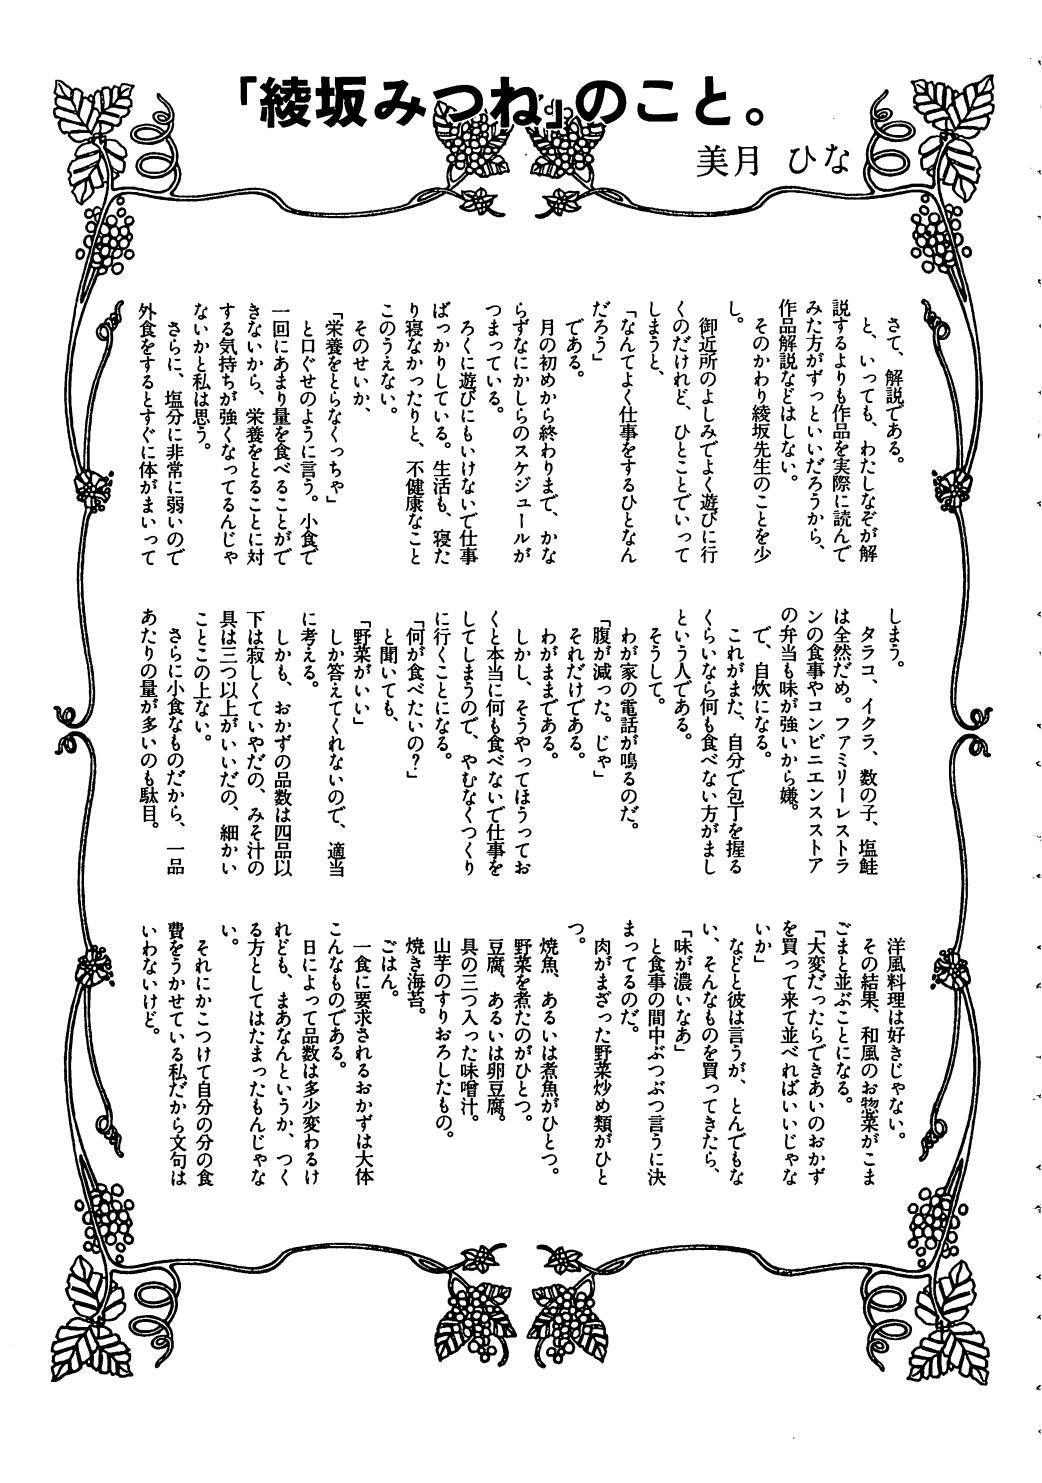 「綾坂みつね」のこと。
美月 ひな
さて、解説である。
と、いっても、わたしなぞが解
説するよりも作品を実際に読んで
みた方がずっといいだろうから、
作品解説などはしない。
そのかわり綾坂先生のことを少
し。
御近所のよしみでよく遊びに行
くのだけれど、ひとことでいって
しまうと、
「なんてよく仕事をするひとなん
だろう」
である。
月の初めから終わりまで、かな
らずなにかしらのスケジュールが
つまっている。
ろくに遊びにもいけないで仕事
ばっかりしている。生活も、寝た
り寝なかったりと、不健康なこと
このうえない。
そのせいか、
「栄養をとらなくっちゃ」
と口ぐせのように言う。小食で
一回にあまり量を食べることがで
きないから、栄養をとることに対
する気持ちが強くなってるんじゃ
ないかと私は思う。
さらに、塩分に非常に弱いので
外食をするとすぐに体がまいって
しまう。
タラコ、イクラ、数の子、塩鮭
は全然だめ。ファミリーレストラ
ンの食事やコンビニエンスストア
の弁当も味が強いから嫌。
で、自炊になる。
これがまた、自分で包丁を握る
くらいなら何も食べない方がまし
という人である。
そうして。
わが家の電話が鳴るのだ。
「腹が減った。じゃ」
それだけである。
わがままである。
しかし、そうやってほうってお
くと本当に何も食べないで仕事を
してしまうので、やむなくつくり
に行くことになる。
「何が食べたいの？」
と聞いても、
「野菜がいい」
しか答えてくれないので、適当
に考える。
しかも、おかずの品数は四品以
下は寂しくていやだの、みそ汁の
具は三つ以上がいいだの、細かい
ことこの上ない。
さらに小食なものだから、一品
あたりの量が多いのも駄目。
洋風料理は好きじゃない。
その結果、和風のお惣菜がこま
ごまと並ぶことになる。
「大変だったらできあいのおかず
を買って来て並べればいいじゃな
いか」
などと彼は言うが、とんでもな
い、そんなものを買ってきたら、
「味が濃いなあ」
と食事の間中ぶつぶつ言うに決
まってるのだ。
肉がまざった野菜炒め類がひと
つ。
焼魚、あるいは煮魚がひとつ。
野菜を煮たのがひとつ。
豆腐、あるいは卵豆腐。
具の三つ入った味噌汁。
山芋のすりおろしたもの。
焼き海苔。
ごはん。
一食に要求されるおかずは大体
こんなものである。
日によって品数は多少変わるけ
れども、まあなんというか、つく
る方としてはたまったもんじゃな
い。
それにかこつけて自分の分の食
費をうかせている私だから文句は
いわないけど。